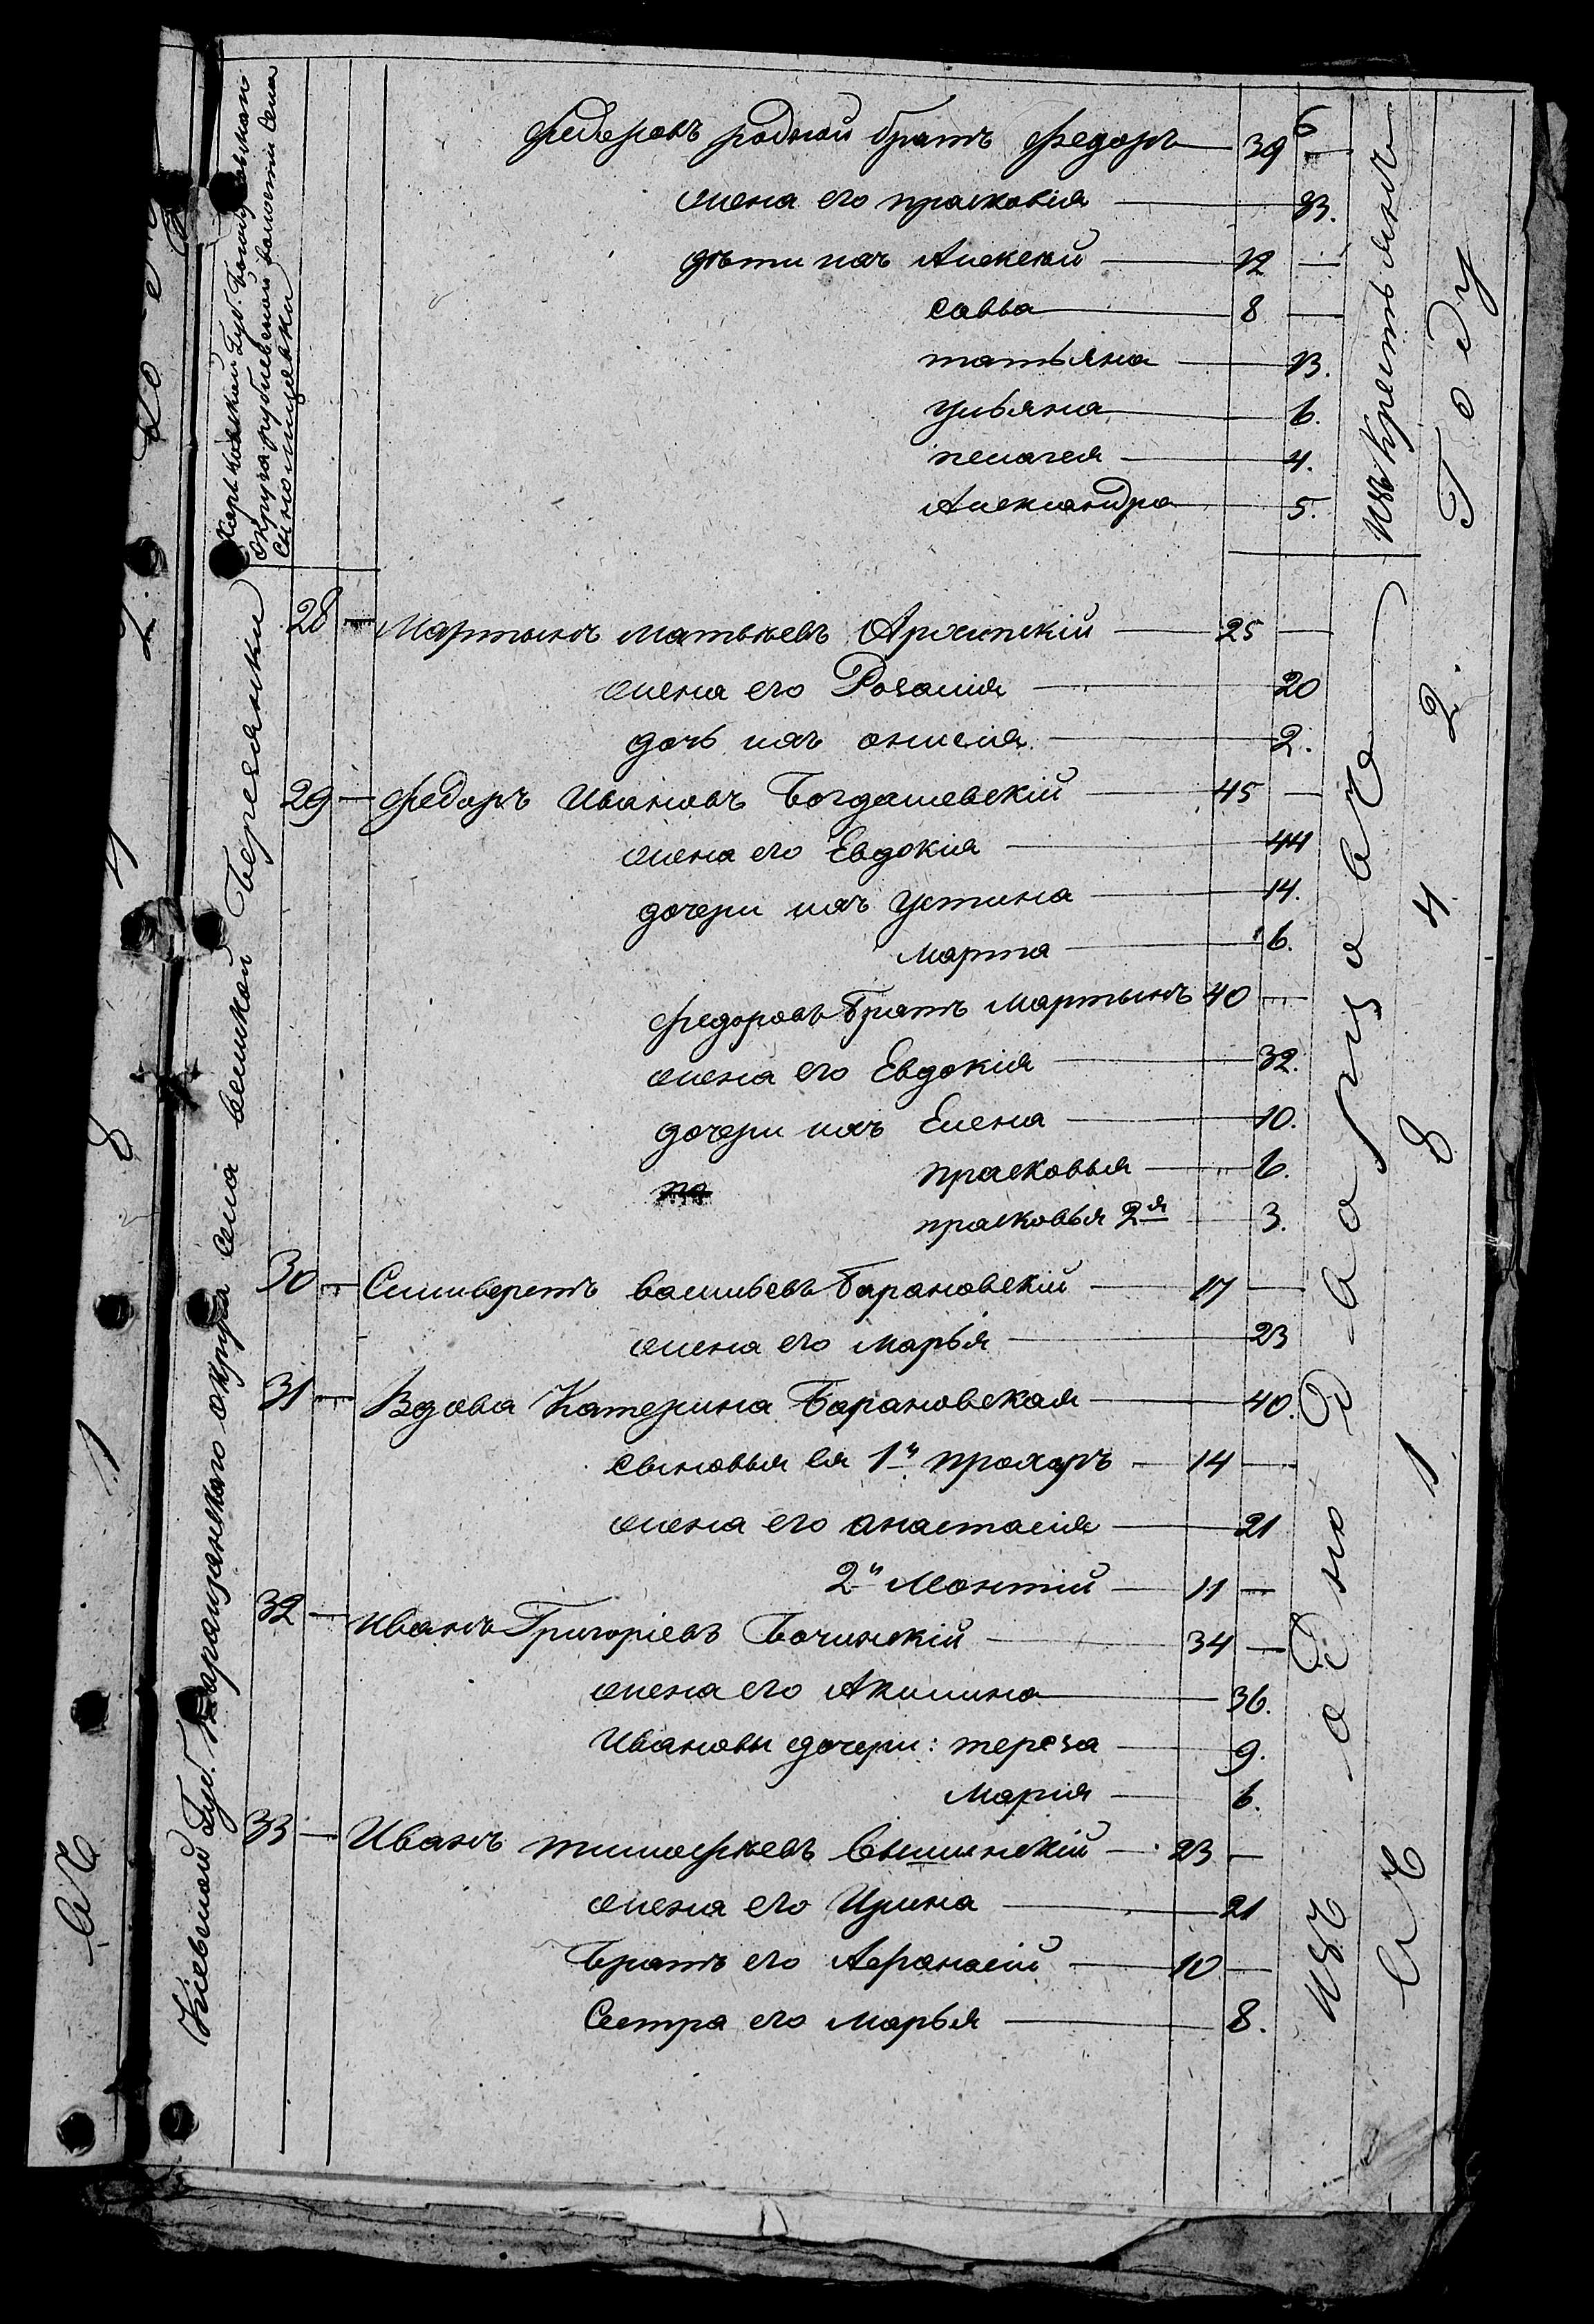 Харьковской Губ. Богодуховскаго
Округа рублевской волости Села
Федоровъ родной братъ Федоръ 39 —
6
жена его прасковія 33.
дѣти ихъ Алексѣй 12 —
савва 8 —
татьяна 13.
ульяна 6.
пелагея 4.
Александра 5.
28 — Мартынъ матвѣевъ Архипскій 25 —
жена его Розалія 20
дочь ихъ онисія 2.
29 — Федоръ Ивановъ Богдашевскій 45 —
жена его Евдокія 44
дочери ихъ устина 14.
марта 6.
Федоровъ братъ Мартынъ 40 —
жена его Евдокія 32.
дочери ихъ Елена 10.
прасковья 6.
прасковья 2я 3.
30 — Силиверстъ васильевъ Барановскій 17 —
жена его марья 23
31 — Вдова Катерина Барановская 40.
сыновья ея 1й прохоръ 14 —
жена его анастасія 21
2й Леонтій 11 —
32 — Иванъ Григоріевъ Бочинскій 34 —
жена его Акилина 36.
Ивановы дочери: тереза 9.
Марія 6.
33 — Иванъ тимофѣевъ Вышинскій 23 —
жена его Ирина 21
Братъ его Афанасій 10 —
Сестра его марья 8.
Кіевской Губ. Таращанского округа села великой Березянки
Изъ Крестьянъ
Изъ однодворцевъ
въ 1 8 4 2. Году
въ 1 8 4